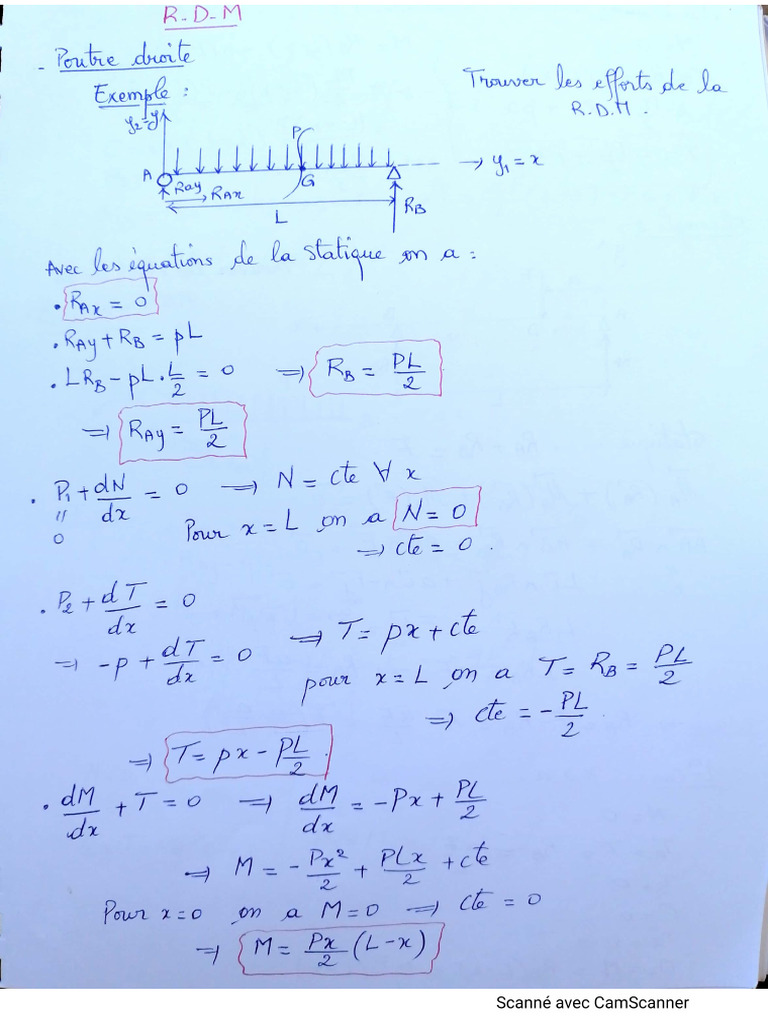 R-D-M
- Poutre droite
Exemple :
Trouver les efforts de la
R.D.M.
y2=y
P
A
G
→ y1 = x
RAy
RAx
RB
L
Avec les équations de la statique on a :
• RAx = 0
• RAy + RB = pL
• LRB - pL . L/2 = 0 ⟹ RB = PL/2
⟹ RAy = PL/2
• P1 + dN/dx = 0 ⟶ N = cte ∀ x
"
0
Pour x = L on a N = 0
⟹ cte = 0 .
• P2 + dT/dx = 0
⟹ -p + dT/dx = 0 ⟹ T = px + cte
pour x = L on a T = RB = PL/2
⟹ cte = - PL/2
⟹ T = px - PL/2
• dM/dx + T = 0 ⟹ dM/dx = -Px + PL/2
⟹ M = - Px²/2 + PLx/2 + cte
Pour x=0 on a M=0 ⟹ cte = 0
⟹ M = Px/2 (L-x)
Scanné avec CamScanner